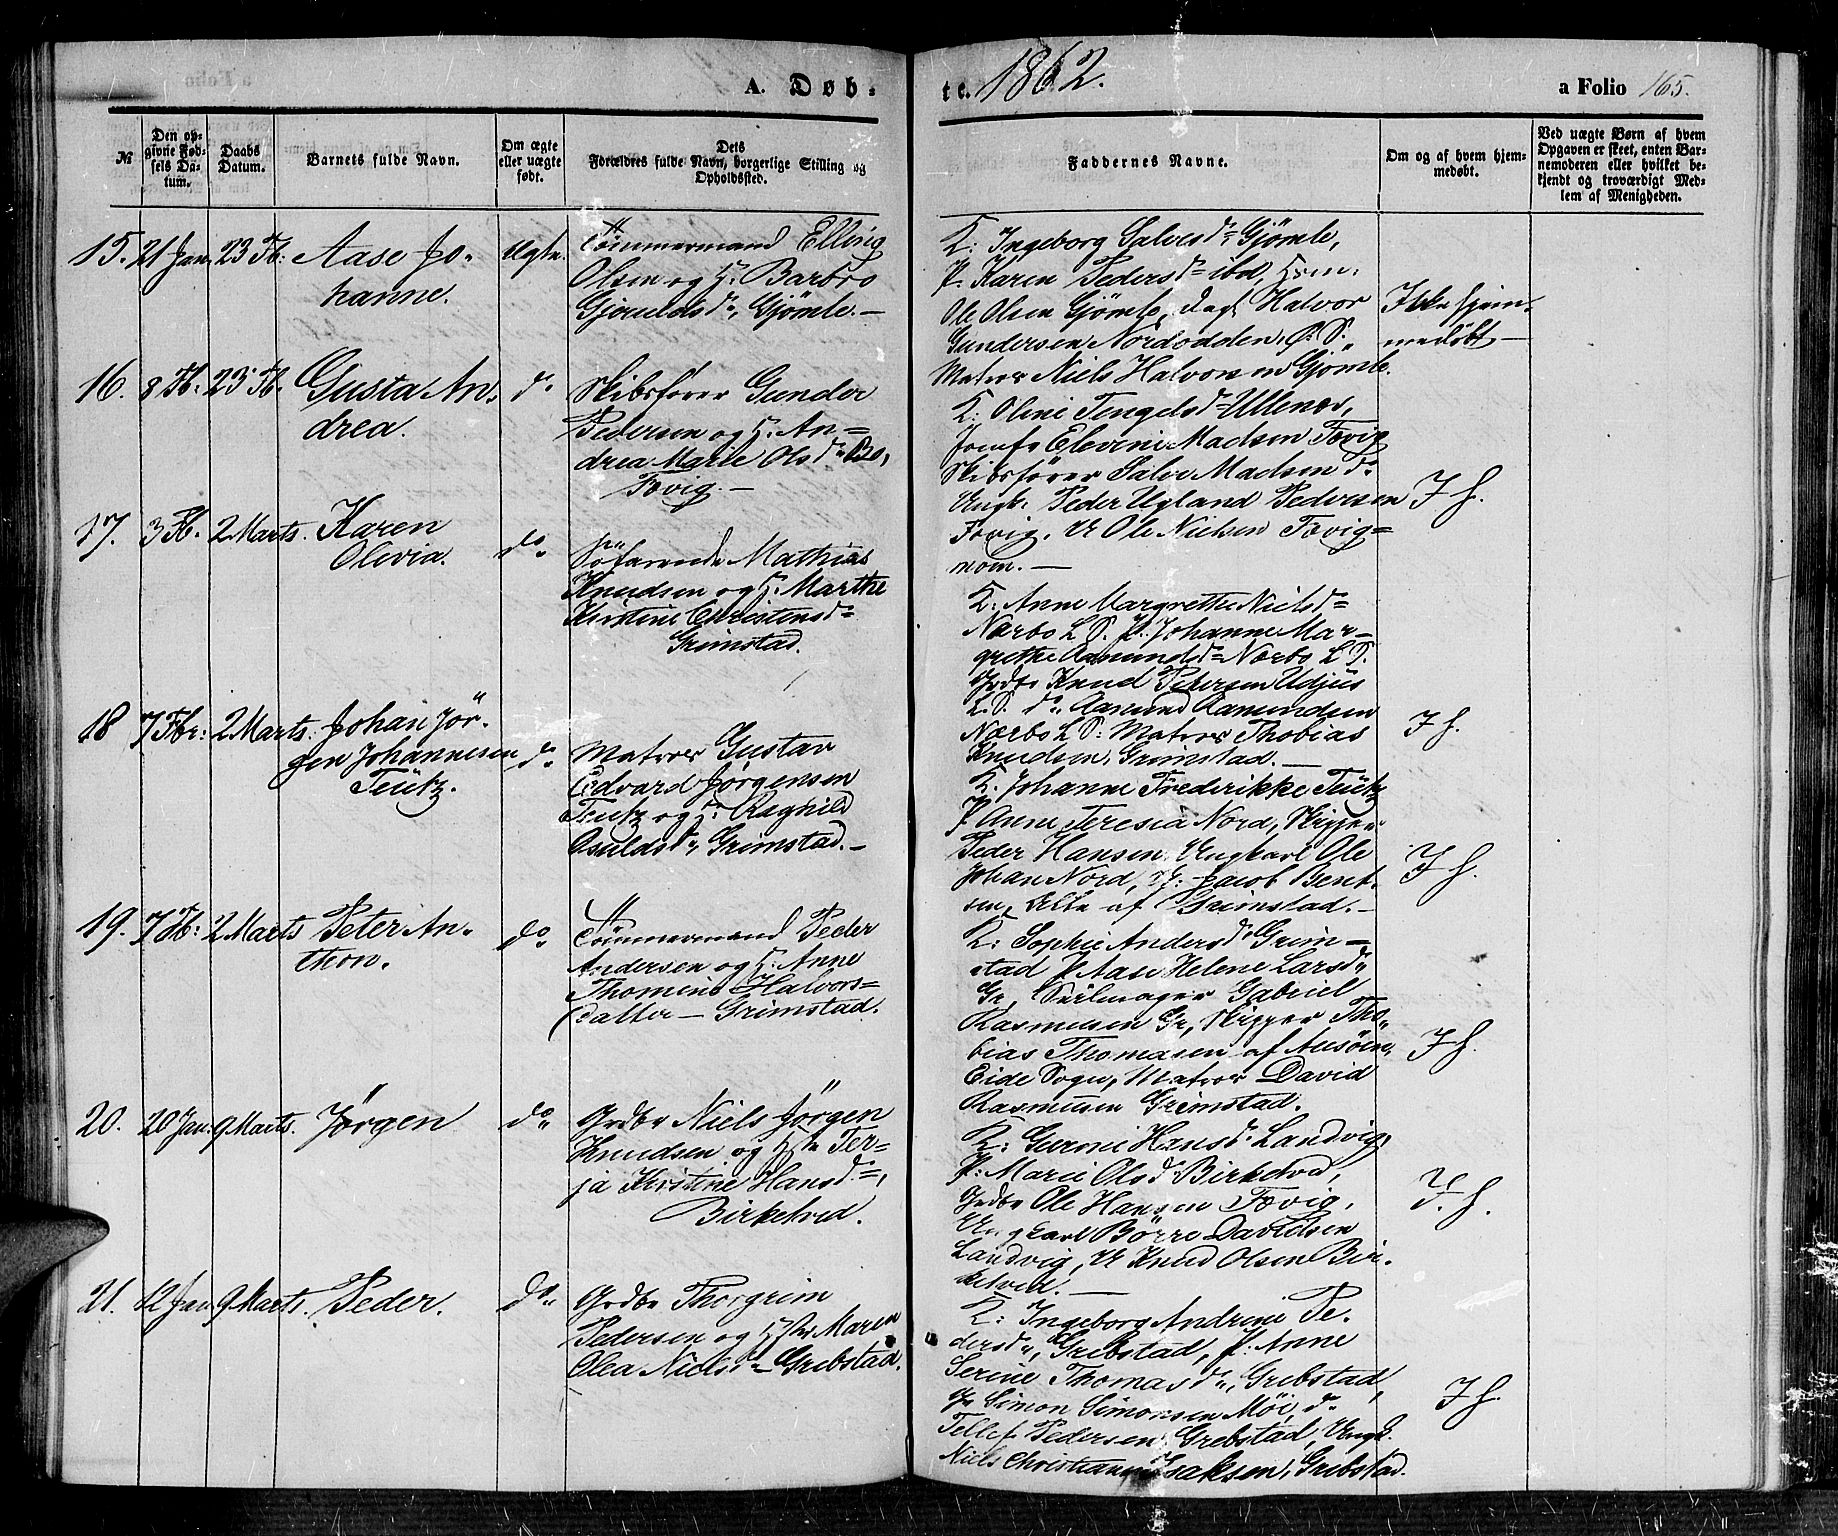 A. Døb-
te. 1862.
a Folio 165.
№
Den op-
givne Fød-
sels Da-
tum.
Daabs
Datum.
Barnets fulde Navn.
Om ægte
eller uægte
født.
Dets
Forældres fulde Navn, borgerlige Stilling og
Opholdssted.
Faddernes Navne.
Om og af hvem hjem-
medøbt.
Ved uægte Børn af hvem
Opgaven er skeet, enten Bar-
nemoderen eller hvilket be-
kjendt og troværdigt Med-
lem af Menigheden.
15. 21 Jan. 23 Fb: Aase Jo-
hanne.
Ægte.
Tømmermand Elling
Olsen og H. Barbro
Gjeruldsd. Gjømle.—
K: Ingeborg Salvesd. Gjømle,
P. Karen Pedersd. ibd,
Ole Olsen Gjømle, Halvor
Gundersen Nordodden, Ø. S.
Matros Niels Halvorsen Gjømle.
Ikke hjem-
medøbt—
16. 8 Fb: 23 Fb. Gusta An-
drea.
do
Skibsfører Gunder
Pedersen og H. An-
drea Marie Olsd.
Fevig.—
K. Oline Tengelsd. Ullenes,
Jomfr Elevine Madsen Fevig
Skibsfører Salve Madsen do
Ungk. Peder Ugland Pedersen
Fevig. U Ole Nielsen Fevig-
moen.—
I H.
17. 3 Fb. 2 Marts. Karen
Olevia.
do
Søfarende Mathias
Knudsen og H. Marthe
Kirstine Christensd.
Grimstad.
K. Anne Margrethe Nielsd.
Nærbo L. S. P. Johanne Mar-
grethe Aamundsd. Nærbo L S.
Grdbr Knud Petersen Udjus
L. S. do Aamund Aamundsen
Nærbo L S: Matros Thobias
Knudsen, Grimstad.—
I H.
18 7 Fbr: 2 Marts. Johan Jør-
gen Johannesen
Teütz.
do
Matros Gustav
Edvard Jørgensen
Teutz og H. Ragnild
Osuldsd. Grimstad.—
K. Johanne Frederikke Teütz
P Anne Teresia Nord, Skipper
Peder Hansen, Ungkarl Ole
Johan Nord, U. Jacob Bent-
sen, Alle af Grimstad.—
I H.
19. 7 Fb: 2 Marts Peter An-
thon.
do
Tømmermand Peder
Andersen og H. Anne
Thomine Halvors-
datter — Grimstad.
K: Sophie Andersd. Grim-
stad P Aase Helene Larsd.
Gr, Seilmager Gabriel
Rasmusen Gr, Skipper Tho-
bias Thomasen af
Eide Sogn, Matros David
Rasmusen Grimstad.
I H.
20. 20 Jan. 9 Marts. Jørgen
do
Grdbr Niels Jørgen
Knudsen og Hstr Ter-
ja Kirstine Hansd.,
Birketved.
K: Gurine Hansd. Landvig,
P. Marie Olsd. Birketved,
Grdbr Ole Hansen Fevig,
Ungkarl Børre Davidsen
Landvig, U Knud Olsen Bir-
ketved.—
I. H.
21. 12 Jan 9 Marts. Peder.
do
Grdbr Thorgrim
Pedersen og Hstr Maren
Olea Nielsd. Grebstad.
K: Ingeborg Andrine Pe-
dersd., Grebstad, P. Anne
Serine Thomasd., Grebstad,
Gr Simon Simonsen Møi, do
Tellef Pedersen, Grebstad, Ungk.
Niels Christian Isaksen, Grebstad.
I H.